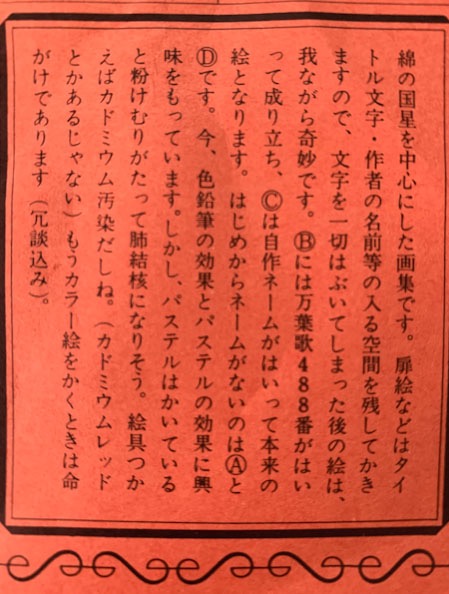 綿の国星を中心にした画集です。扉絵などはタイ
トル文字・作者の名前等の入る空間を残してかき
ますので、文字を一切はぶいてしまった後の絵は、
我ながら奇妙です。Ⓑには万葉歌488番がはい
って成り立ち、Ⓒは自作ネームがはいって本来の
絵となります。はじめからネームがないのはⒶと
Ⓓです。今、色鉛筆の効果とパステルの効果に興
味をもっています。しかし、パステルはかいている
と粉けむりがたって肺結核になりそう。絵具つか
えばカドミウム汚染だしね。（カドミウムレッド
とかあるじゃない）もうカラー絵をかくときは命
がけであります（冗談込み）。